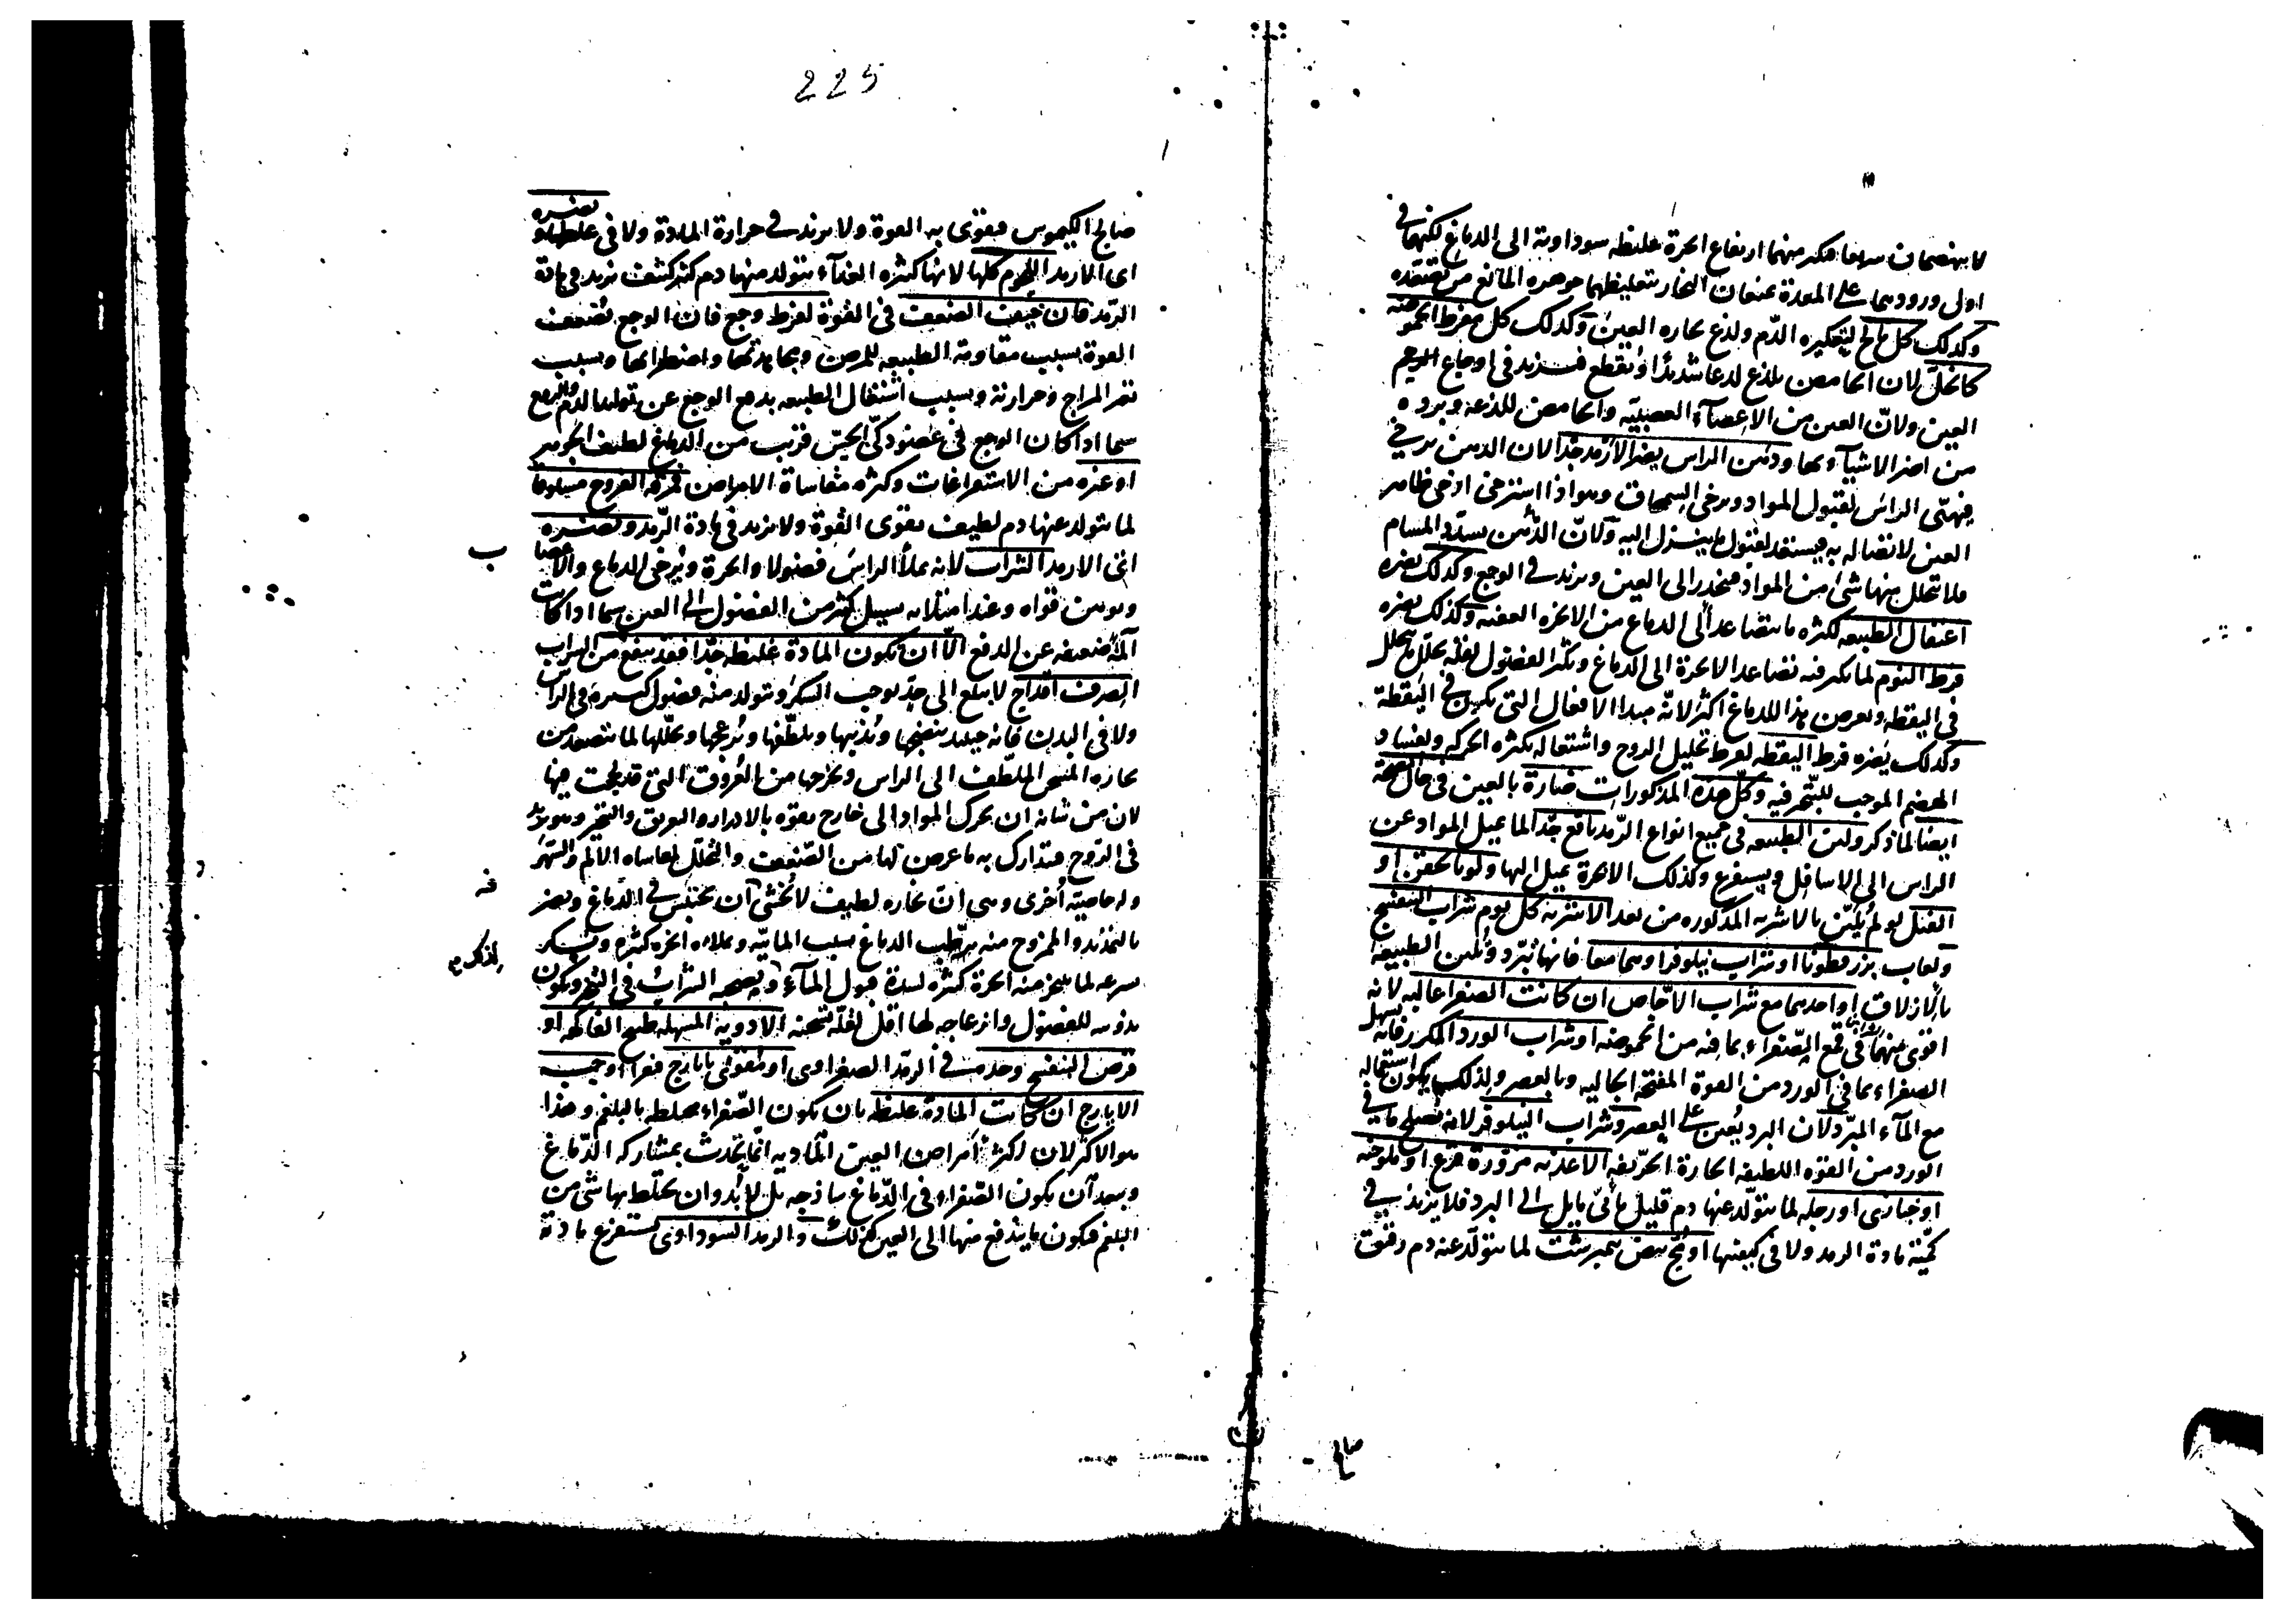 لا ينهضمان سريعا فيكثر منهما ارتفاع ابخرة غليظة سوداوية الى الدماغ لكنهما في
اول ورودهما على المعدة يمنعان البخار بتغليظهما جوهره المانع من تصعده
وكذلك كل مالح لتعكيره الدم ولذع بخاره العين وكذلك كل مفرط الحموضة
كالخل لان الحامض يلذع لذعا شديدا ويقطع فيزيد في اوجاع
العين ولان العين من الاعضاء العصبية والحامض للذعه وبرده
من اضر الاشياء بها ودهن الراس يضر الارمد جدا لان الدهن يرخي
فيهيئ الراس لقبول المواد ويرخي السمحاق وهو اذا استرخى ارخى ظاهر
العين لاتصاله به فيستعد لقبول ما ينزل اليه ولان الدهن يسدد المسام
فلا تتحلل منها شئ من المواد فينحدر الى العين ويزيد في الوجع وكذلك يضره
اعتقال الطبيعة لكثرة ما يتصاعد الى الدماغ من الابخرة العفنة وكذلك يضره
فرط النوم لما يكثر فيه تصاعد الابخرة الى الدماغ وتكثر الفضول لقلة تحلل ما يتحلل
في اليقظة ويعرض هذا للدماغ اكثر لانه مبدا الافعال التي تكون في اليقظة
وكذلك يضره فرط اليقظة لفرط تحليل الروح واشتعاله بكثرة الحركة ولفساد
الهضم الموجب للتبخر فيه وكل هذه المذكورات ضارة بالعين في حال الصحة
ايضا لما ذكر ولين الطبيعة في جميع انواع الرمد نافع جدا لما يميل المواد عن
الراس الى الاسافل ويستفرغ وكذلك الابخرة يميل اليها ولو بالحقن او
الفتل لو لم يلين بالاشربة المذكورة من بعد الاشربة كل يوم شراب البنفسج
ولعاب بزر قطونا او شراب نيلوفر او هما معا فانها تبرد وتلين الطبيعة
بالازلاق او احدهما مع شراب الاجاص ان كانت الصفرا غالبة لانه
اقوى منهما في قمع الصفراء بما فيه من الحموضة او شراب الورد المكرر فانه يسهل
الصفراء بما في الورد من القوة المفتحة الجالية وبالعصر ولذلك يكون استعماله
مع الماء المبرد لان البرد يعين على العصر وشراب النيلوفر لانه يصلح ما في
الورد من القوة اللطيفة الحارة الحريفة الاغذية مزورة قرع او ملوخية
او خبازى او رجلة لما يتولد عنها دم قليل مائي مايل الى البرد فلا يزيد في
كمية مادة الرمد ولا في كيفيتها او مح بيض نيمبرشت لما يتولد عنه دم رقيق
صالح
225
صالح الكيموس فيقوى به القوة ولا يزيد في حرارة المادة ولا في غلظها ويضره
اي الارمد اللحوم كلها لانها كثيرة الغذاء يتولد منها دم كثير كثيف يزيد في مادة
الرمد فان خيفت الضعف في القوة لفرط وجع فان الوجع يضعف
القوة بسبب مقاومة الطبيعة للمرض ومجاهدتها واضطرابها وبسبب
تغير المزاج وحرارته وبسبب اشتغال الطبيعة بدفع الوجع عن توليد الدم والروح
سيما اذا كان الوجع في عضو ذكي الحس قريب من الدماغ لطيف الجوهر
او غيره من الاستفراغات وكثرة مقاساة الامراض فمرقة الفروج مسلوقا
لما يتولد عنها دم لطيف يقوى القوة ولا يزيد في مادة الرمد ويضره
اي الارمد الشراب لانه يملأ الراس فضولا وابخرة ويرخي الدماغ والاعصاب
ويوهن قواه وعند امتلائه يسيل كثير من الفضول الى العين سيما اذا كانت
آلمة ضعيفة عن الدفع الا ان تكون المادة غليظة جدا فقد ينفع من الشراب
الصرف اقداح لا يبلغ الى حد يوجب السكر ويتولد منه فضول كثيرة في الراس
ولا في البدن فانه حينئذ ينضجها ويذيبها ويلطفها ويزعجها ويحللها لما يتصعد من
بخاره المسخن الملطف الى الراس ويخرجها من العروق التي قد لحجت فيها
لان من شانه ان يحرك المواد الى خارج بقوة بالادرار والعرق والتبخر وهو يزيد
في الروح فيتدارك به ما عرض لها من الضعف والتحلل لمقاساة الالم والسهر
وله خاصية اخرى وهي ان بخاره لطيف لا يخشى ان يحتبس في الدماغ ويضر
بالتمديد والممزوج منه يرطب الدماغ بسبب المائية ويملاءه ابخرة كثيرة ويسكر
سرعة لما يتبخر منه ابخرة كثيرة لشدة قبول الماء ويصحبه الشراب في التبخر ويكون
تذويبه للفضول وازعاجه لها اقل لقلة تسخينه الادوية المسهلة طبيخ الفاكهة او
قرص البنفسج وحده في الرمد الصفراوي او مقوى بايارج فيقرا او حب
الايارج ان كانت المادة غليظة بان تكون الصفراء مختلطة بالبلغم وهذا
هو الاكثر لان اكثر امراض العين المادية انما تحدث بمشاركة الدماغ
وبعد ان يكون الصفراء في الدماغ ساذجة بل لا بد وان يختلط بها شئ من
البلغم فيكون ما يندفع منها الى العين كذلك والرمد السوداوي يستفرغ مادته
ب